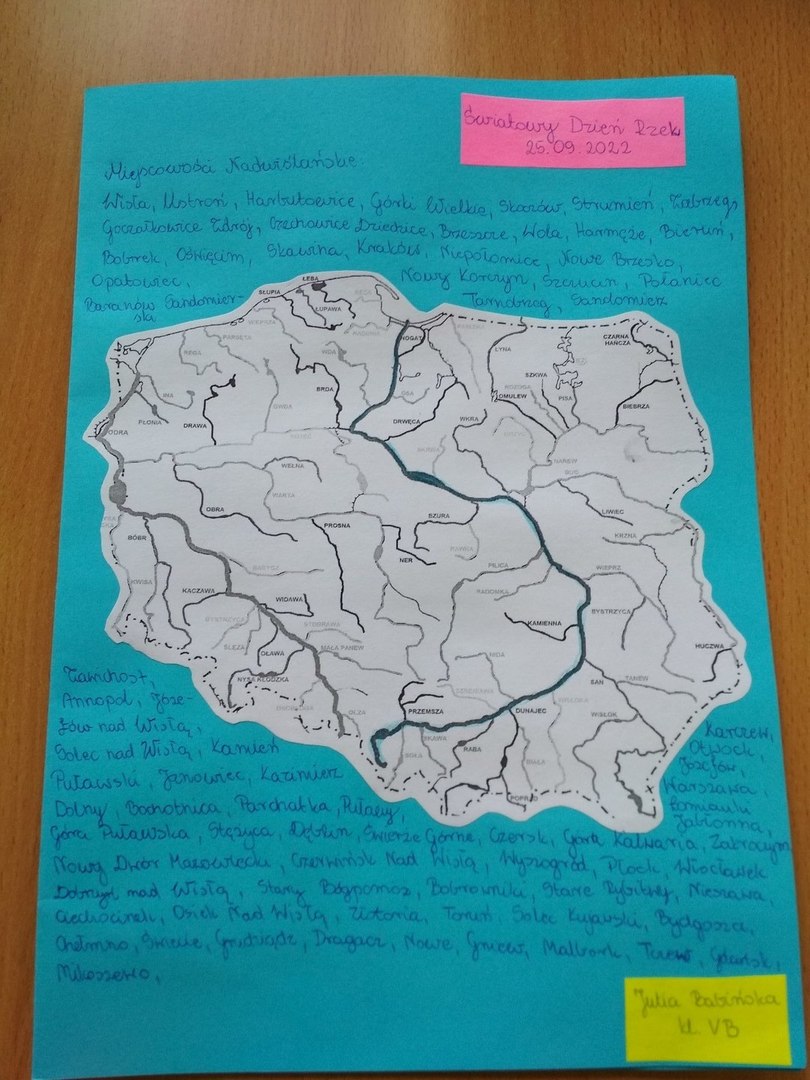 Światowy Dzień Rzek
25.09.2022
Miejscowości Nadwiślańskie
Wisła, Ustroń, Harbutowice, Górki Wielkie, Skoczów, Strumień, Zabrzeg,
Goczałkowice Zdrój, Czechowice Dziedzice, Brzeszcze, Wola, Harmęże, Bieruń,
Bobrek, Oświęcim, Skawina, Kraków, Niepołomice, Nowe Brzesko,
Opatowiec, Nowy Korczyn, Szczucin, Połaniec
Baranów Sandomier-
ski Tarnobrzeg, Sandomierz
ŁEBA
SŁUPIA
ŁUPAWA
WIEPRZA
PARSĘTA
REGA
WDA
NOGAT
ŁYNA
CZARNA
HAŃCZA
SZKWA
ROZOGA
OMULEW
PISA
BIEBRZA
INA
PŁONIA
DRAWA
GWDA
BRDA
OSA
DRWĘCA
WKRA
ODRA
NOTEĆ
SKRWA
NAREW
BUG
WEŁNA
WARTA
OBRA
PROSNA
BZURA
LIWIEC
KRZNA
BÓBR
NER
RAWKA
PILICA
WIEPRZ
KWISA
KACZAWA
BARYCZ
WIDAWA
RADOMKA
KAMIENNA
BYSTRZYCA
BYSTRZYCA
STOBRAWA
ŚLĘZA
OŁAWA
MAŁA PANEW
NIDA
HUCZWA
NYSA KŁODZKA
SAN
TANEW
OLZA
PRZEMSZA
DUNAJEC
WISŁOKA
WISŁOK
SKAWA
SOŁA
RABA
BIAŁA
POPRAD
Zawichost,
Annopol, Józe-
fów nad Wisłą,
Solec nad Wisłą, Kamień
Puławski, Janowiec, Kazimierz
Dolny, Bochotnica, Parchatka, Puławy,
Karczew,
Otwock,
Józefów,
Warszawa,
Łomianki
Jabłonna,
Góra Puławska, Stężyca, Dęblin, Świerże Górne, Czersk, Góra Kalwaria, Zakroczym
Nowy Dwór Mazowiecki, Czerwińsk Nad Wisłą, Wyszogród, Płock, Włocławek
Dobrzyń nad Wisłą, Stary Bógpomoż, Bobrowniki, Stare Rybitwy, Nieszawa,
Ciechocinek, Osiek Nad Wisłą, Złotoria, Toruń, Solec Kujawski, Bydgoszcz,
Chełmno, Świecie, Grudziądz, Dragacz, Nowe, Gniew, Malbork, Tczew, Gdańsk,
Mikoszewo,
Julia Babińska
kl. VB